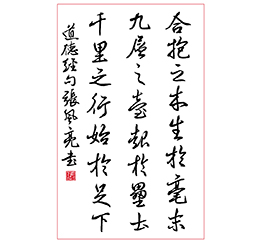 合抱之木生於毫末
九層之臺起於壘土
千里之行始於足下
道德經句張風亮書